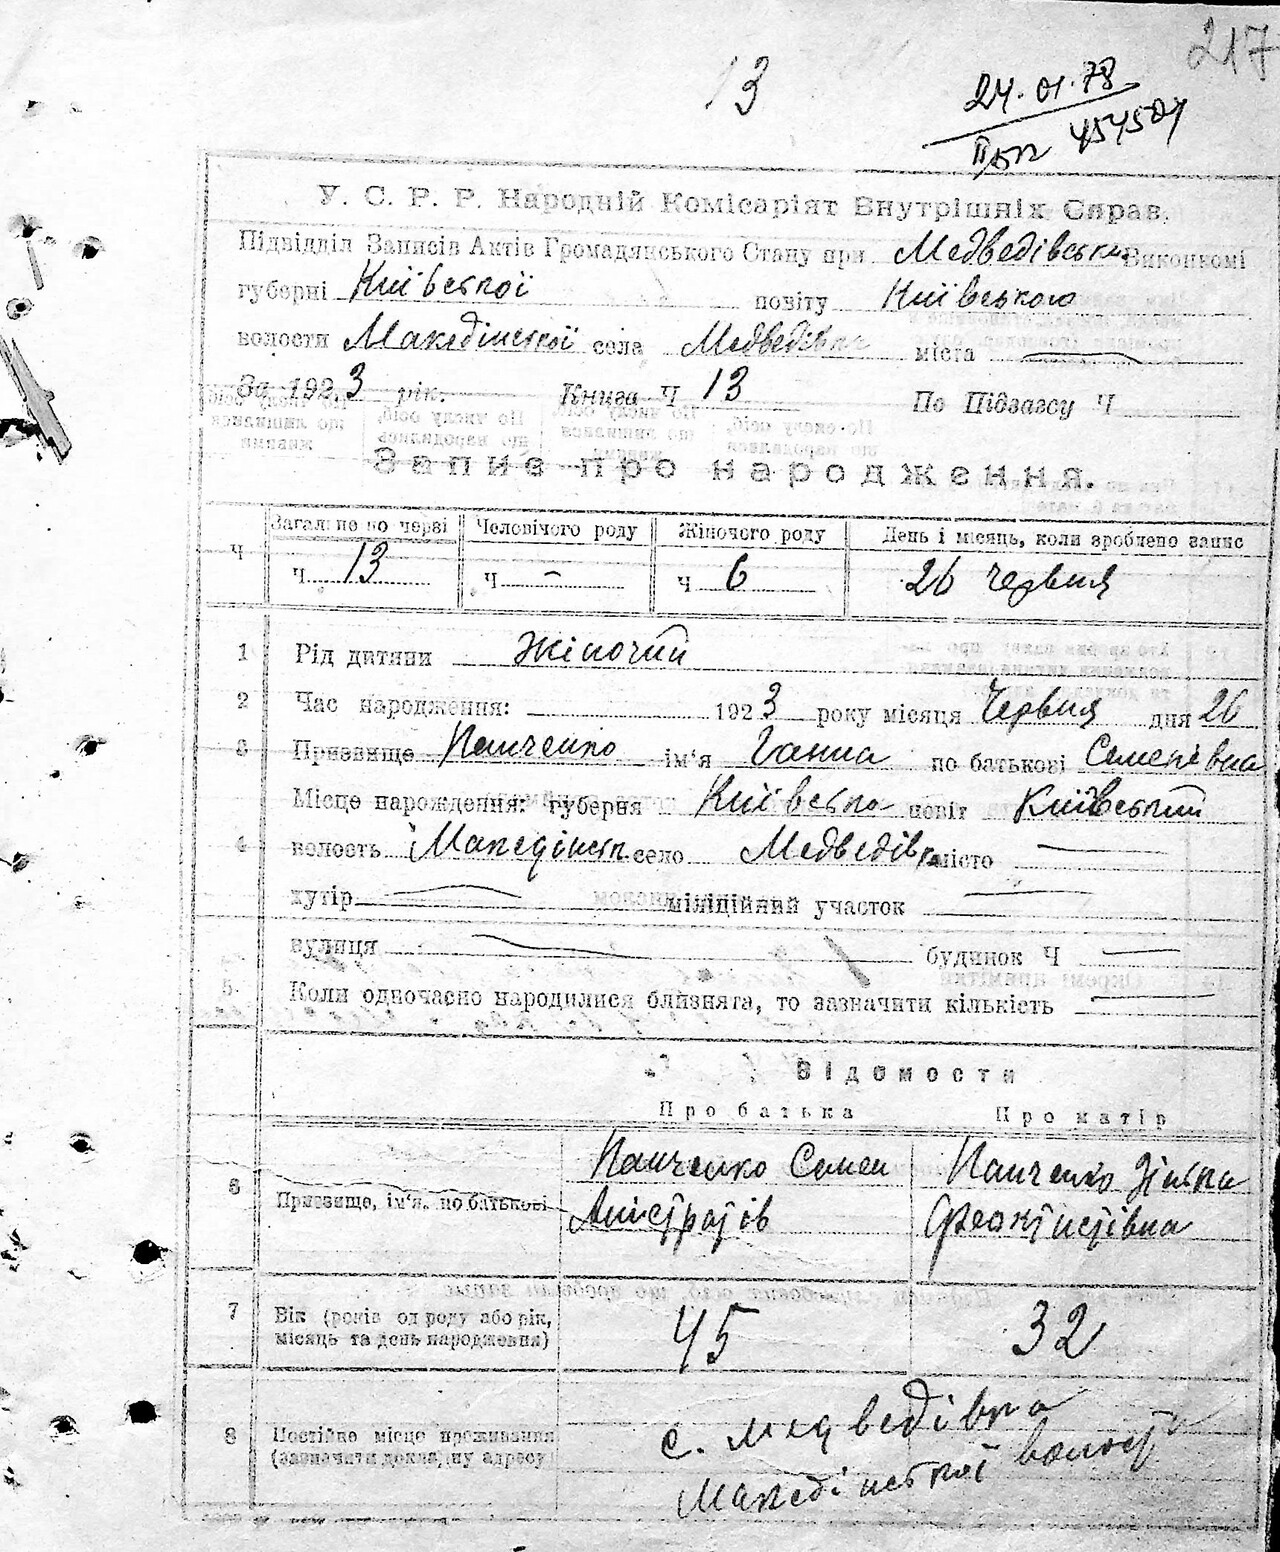 217
13
24.01.78
У. С. Р. Р. Народній Комісаріят Внутрішніх Справ.
Підвідділ Записів Актів Громадянського Стану при Медведівськ Виконкомі
губерні Київської повіту Київського
волости Македінської села Медведівка міста —
За 1923 рік. Книга Ч 13 По Підзагсу Ч
Запис про народження.
Загальне по черзі Человічего роду Жіночего роду День і місяць, коли зроблено запис
Ч Ч 13 Ч — Ч 6 26 червня
1 Рід дитини жіночий
2 Час народження: 1923 року місяця Червня дня 26
3 Призвище Панченко ім'я Ганна по батькові Семенівна
Місце народження: губерня Київська повіт Київський
4 волость Македінськ село Медведівка місто —
хутір — міліційний участок —
вулиця — будинок Ч —
5 Коли одночасно народилися близнята, то зазначити кількість —
Відомости
Про батька Про матір
6 Призвище, ім'я, по батькові
Панченко Семен Панченко Зінька
Феоктистівна
7 Вік (років од роду або рік, місяць та день народження) 45 32
8 Постійне місце проживання (зазначити докладну адресу)
с. Медведівка
Македінської волости